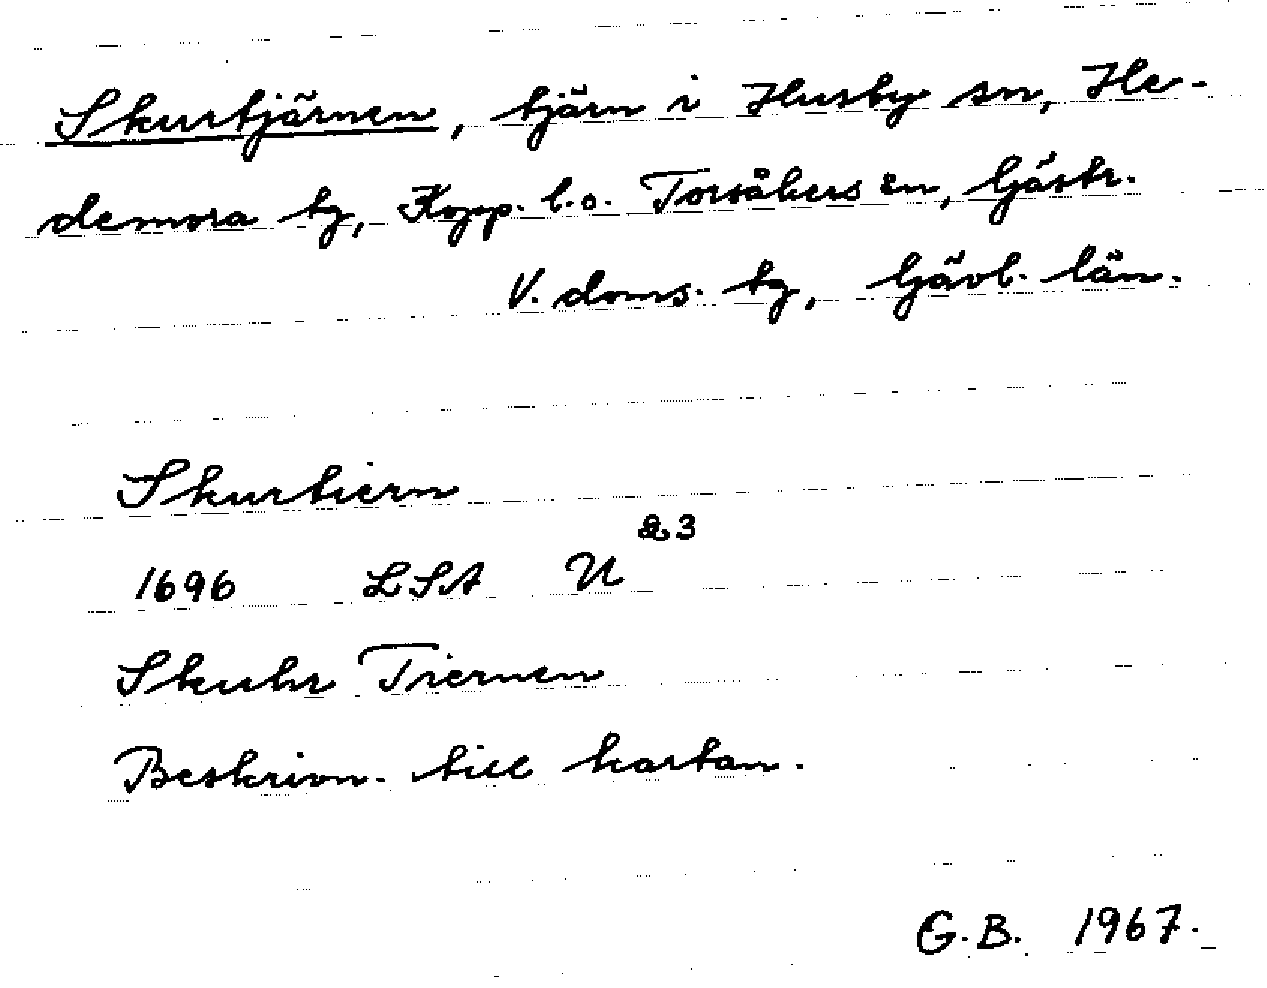 Skurtjärnen, tjärn i Husby sn, He-
demora tg, Kopp. l. o. Torsåkers sn, Gästr.
V. doms. tg, Gävl. län.
Skurtiern
1696 LSA U 3
Skuhr Tiernen
Beskrivn. till kartan.
G.B. 1967.